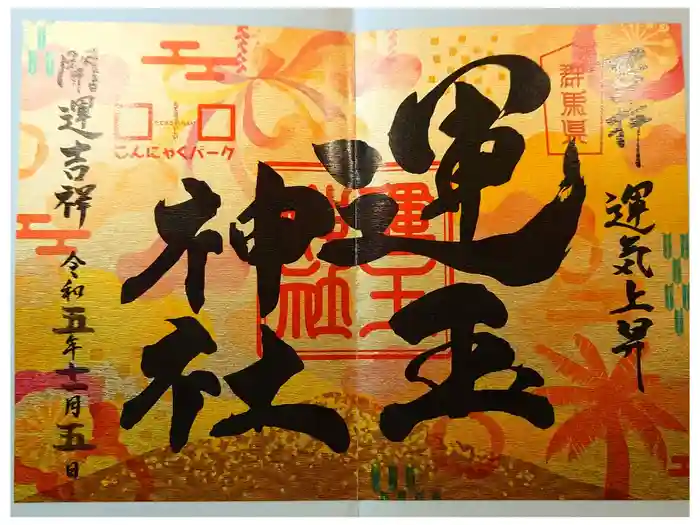 運気上昇
群馬県
運玉
神社
運玉
神社
こんにゃくパーク
開運吉祥
令和五年十一月五日